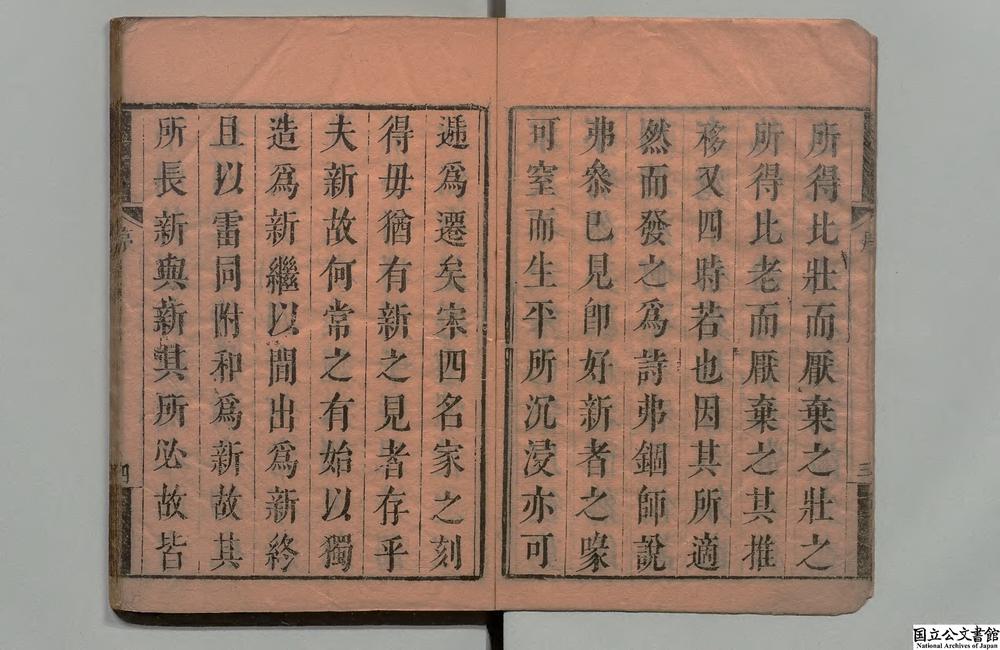 所得比壯而厭棄之壯之
所得比老而厭棄之其推
移又四時若也因其所適
然而發之爲詩弗錮師說
弗叅已見卽好新者之喙
可窒而生平所沉浸亦可
遞爲遷矣宋四名家之刻
得毋猶有新之見者存乎
夫新故何常之有始以獨
造爲新繼以間出爲新終
且以雷同附和爲新故其
所長新與新其所必故皆
序
三
序
四
国立公文書館
National Archives of Japan